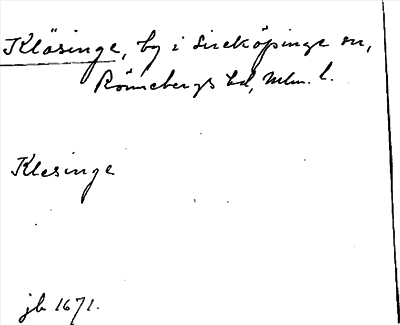 Klösinge, by i Sireköpinge sn,
Rönnebergs hd, Mlm. l.
Klesinge
jb 1671.